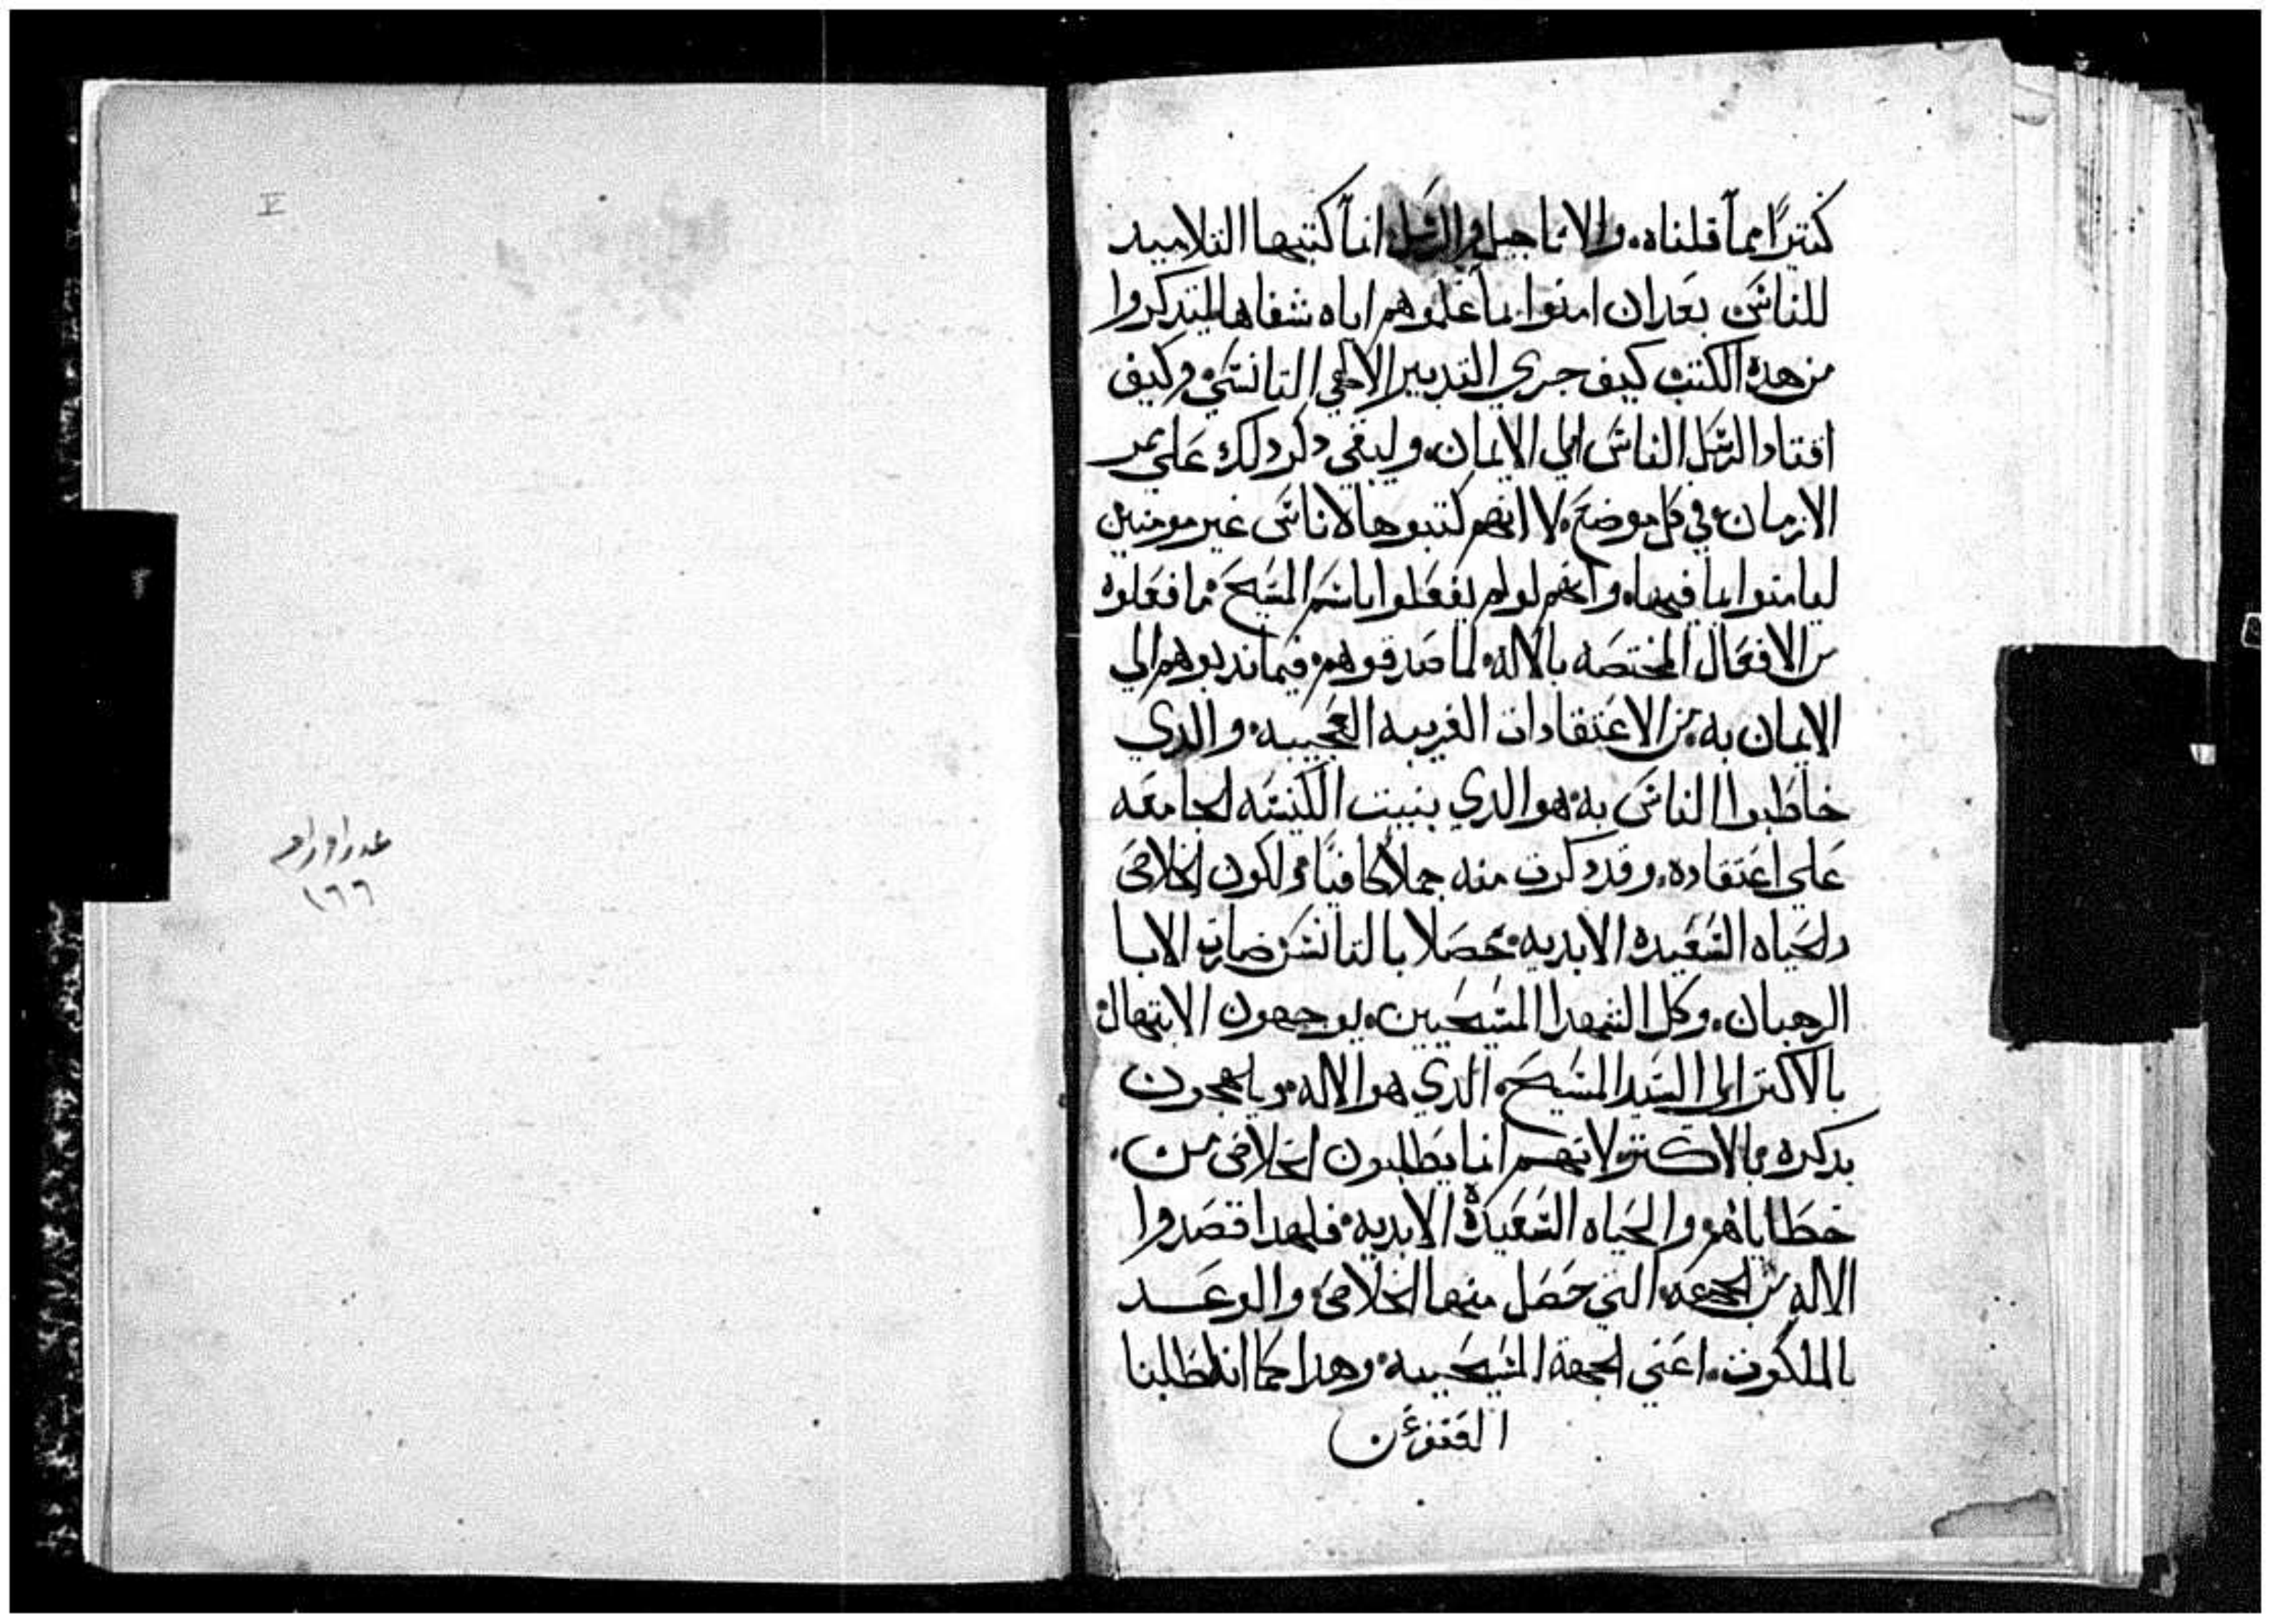 كتيرًا مما قلناه. والاناجيل والرسل انما كتبها التلاميد
للناس بعد ان امنوا بما علموهم اياه شفاها ليتدكروا
من هده الكتب كيف جري التدبير الالاهي التانسي وكيف
اقتاد الرسل الناس الي الايمان. وليبقي دكر دلك علي ممر
الازمان وفي كل موضع. لا انهم كتبوها لاناس غير مومنين
ليامنوا بما فيها. وانهم لو لم يفعلوا باسم المسيح ما فعلوه
من الافعال المختصه بالاله. لما صدقوهم فيما ندبوهم الي
الايمان به من الاعتقادات الغريبه العجيبه. والدي
خاطبوا الناس به هو الدي بنيت الكنيسه الجامعه
علي اعتقاده. وقد دكرت منه جملا كافيًا. ولكون الخلاص
والحياه السعيده الابديه. حصلا بالتانس صارت الابا
الرهبان. وكل الشهدا المسيحيين. يوجهون الابتهال
بالاكتر الي السيد المسيح. الدي هو الاله. ويلهجون
بدكره بالاكتر. لانهم انما يطلبون الخلاص من.
خطاياهم والحياه السعيدة الابديه. فلهدا قصدوا
الاله من الجهه التي حصل منها الخلاص والوعد
بالملكوت. اعني الجهة المسيحييه. وهدا كما اننا طلبنا
١٦٦